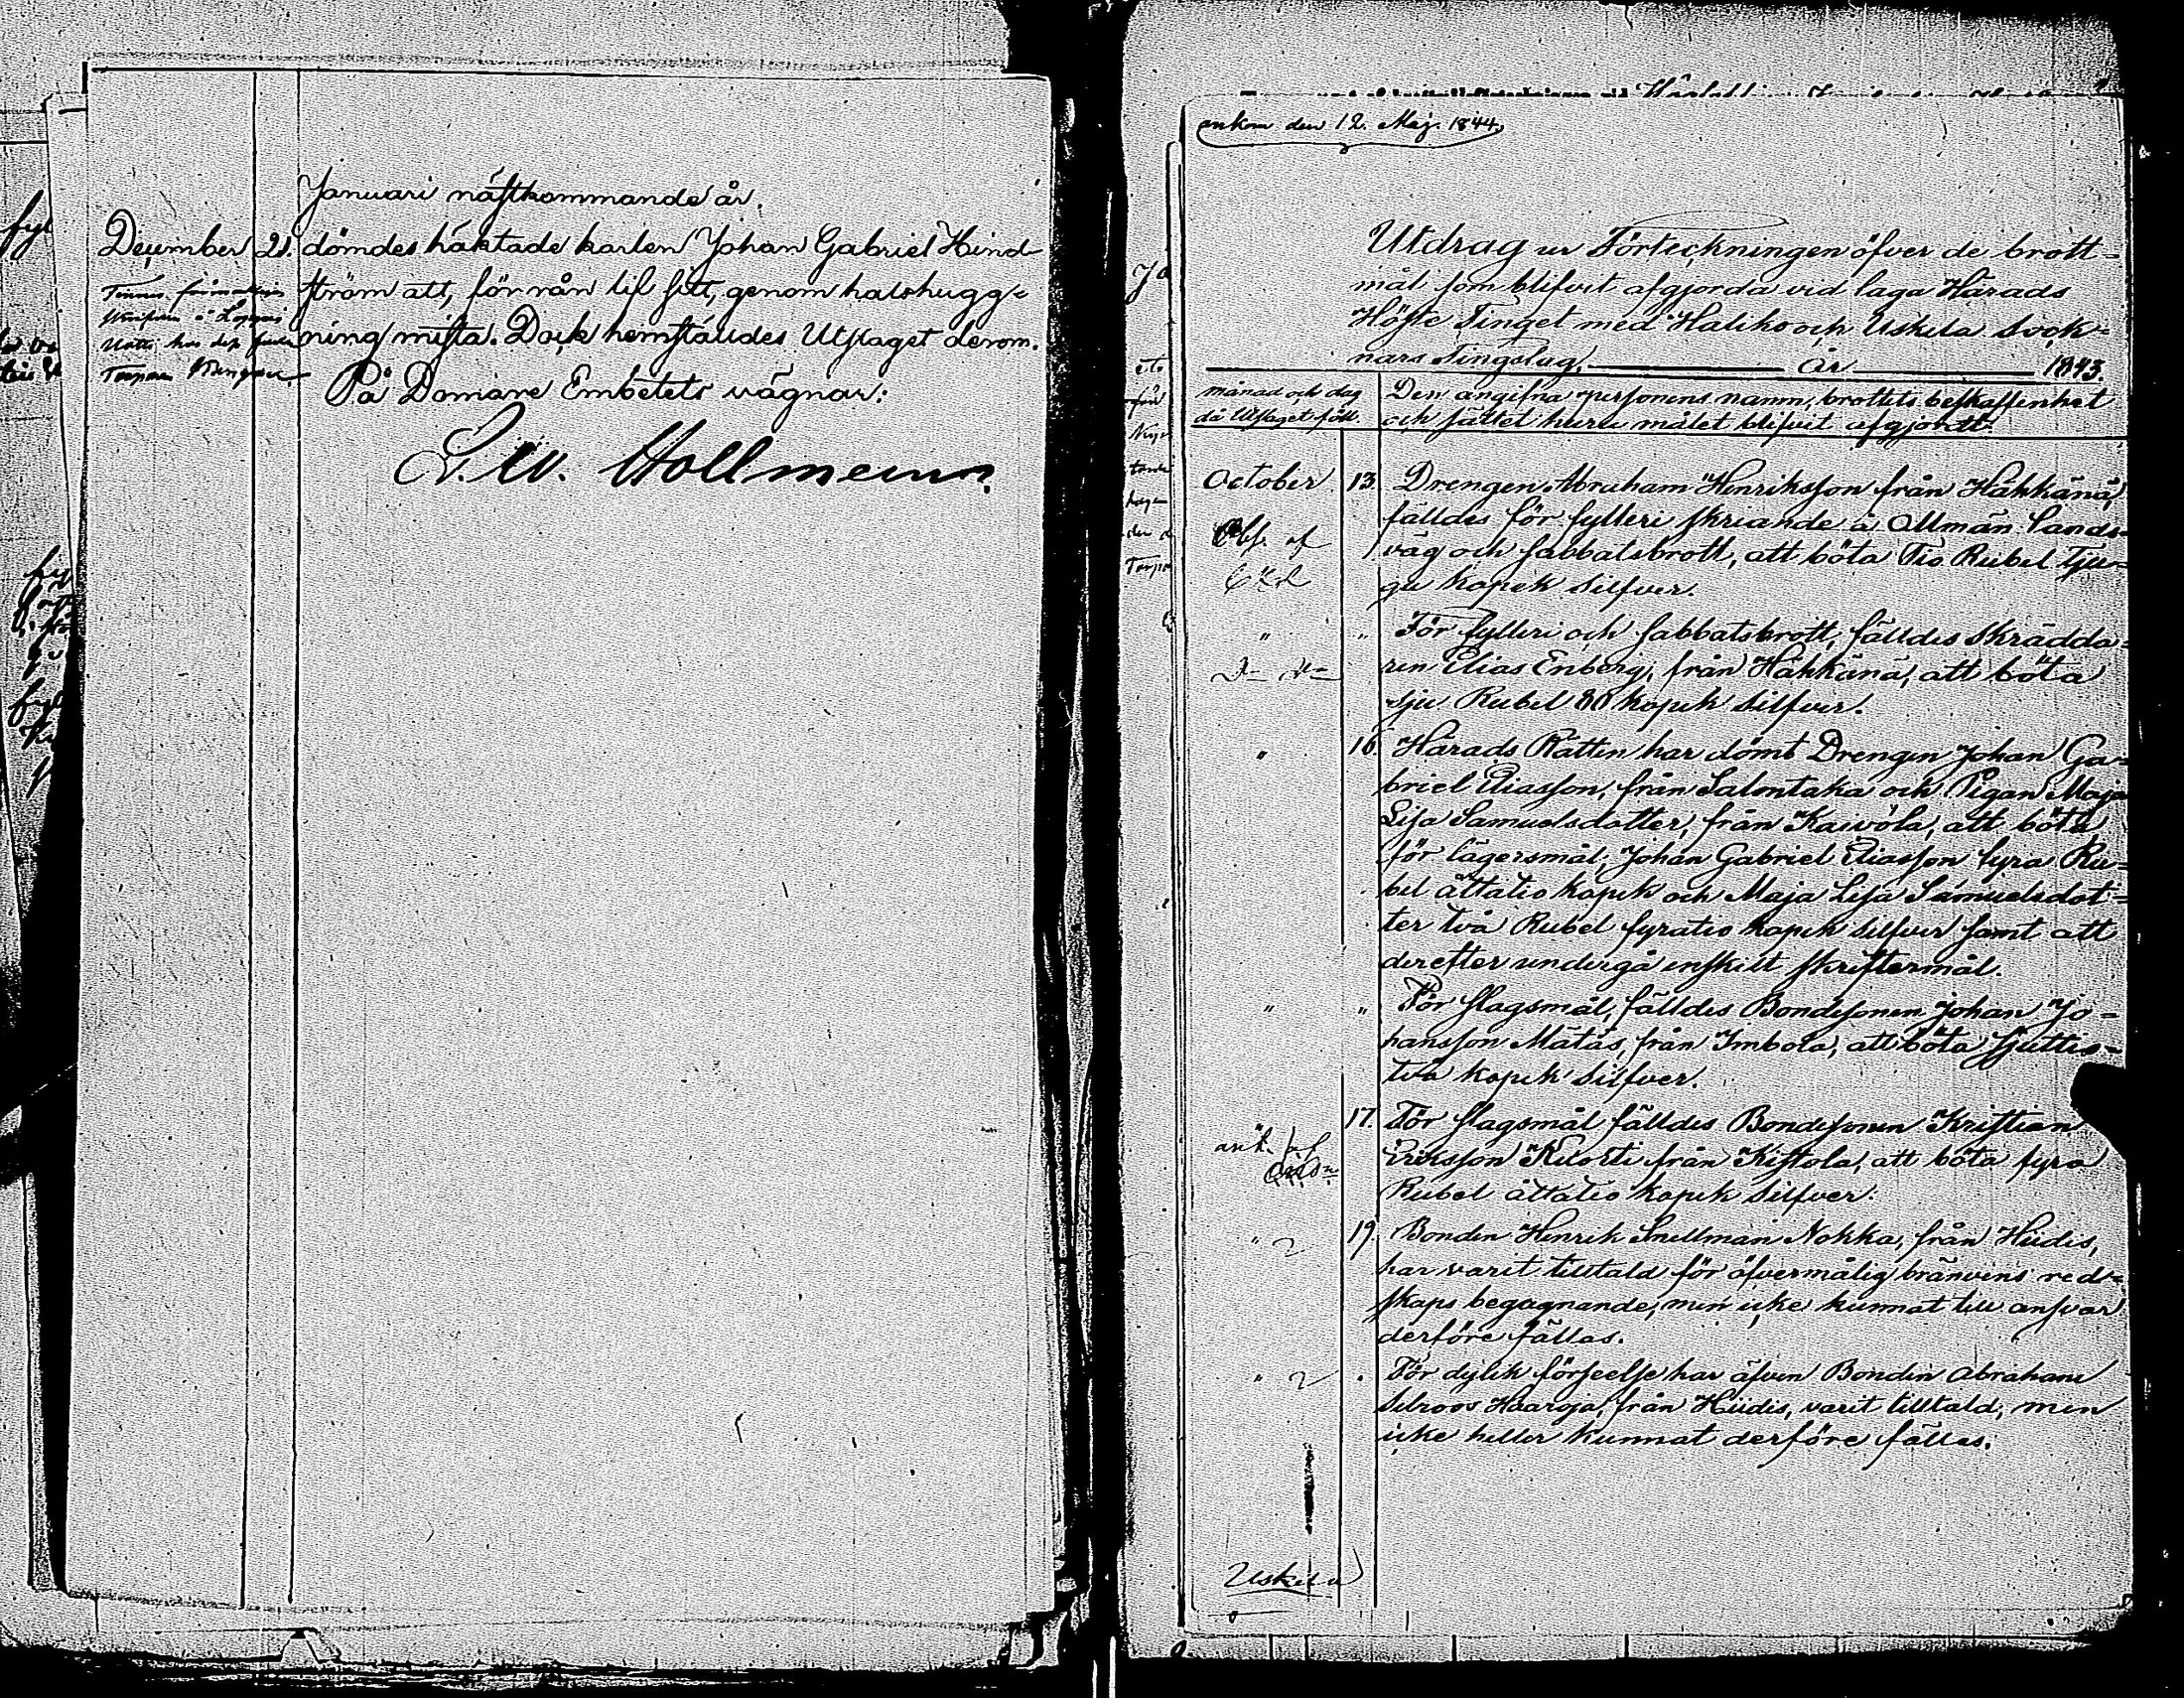 Januari nästkommande år.
December 21. dömdes häktade karlen Johan Gabriel Hind-
ström att, för rån lif sitt, genom halshugg-
ning mista. Dock hemställdes Utslaget derom.
På Domare Embetets vägnar:
ankom den 12. Maj. 1844.
Utdrag ur Förteckningen öfver de brott-
mål som blifvit afgjorda vid laga Härads
Höste Tinget med Haliko och Uskela Sock-
nars Tingslag, År 1843.
månad och dag
då Utslaget föll.
Den angifna personens namn, brottets beskaffenhet
och sättet huru målet blifvit afgjordt.
October 13. Drengen Abraham Henriksson från Håkkänä,
fälldes för fylleri skriande å Allmän Lands-
väg och sabbatsbrott, att böta Tio Rubel tju-
gu kopek silfver.
" " För fylleri och sabbatsbrott, fälldes Skrädda-
ren Elias Enberg, från Håkkänä, att böta
sju Rubel 88 kopek silfver.
" 16. Härads Rätten har dömt Drengen Johan Ga-
briel Eliasson, från Salontaka och Pigan Maja
Lisa Samuelsdotter, från Kaivola, att böta
för lägersmål, Johan Gabriel Eliasson fyra Ru-
bel åttatio kopek och Maja Lisa Samuelsdot-
ter två Rubel fyratio kopek silfver samt att
derefter undergå enskilt skriftermål.
" " För slagsmål, fälldes Bondesonen Johan Jo-
hansson Mätäs, från Imbola, att böta sjuttio-
två kopek silfver.
17. För slagsmål fälldes Bondesonen Kristian
Eriksson Kuosti från Kistola, att böta fyra
Rubel åttatio kopek silfver.
" 2 19. Bonden Henrik Snellman Nokka, från Hiidis,
har varit tilltald för öfvermålig bränvins red-
skaps begagnande, men icke kunnat till ansvar
derföre fällas.
" 2 " För dylik förseelse har äfven Bonden Abraham
Selroos Haaroja, från Hiidis, varit tilltald, men
icke heller kunnat derföre fällas.
Uskela